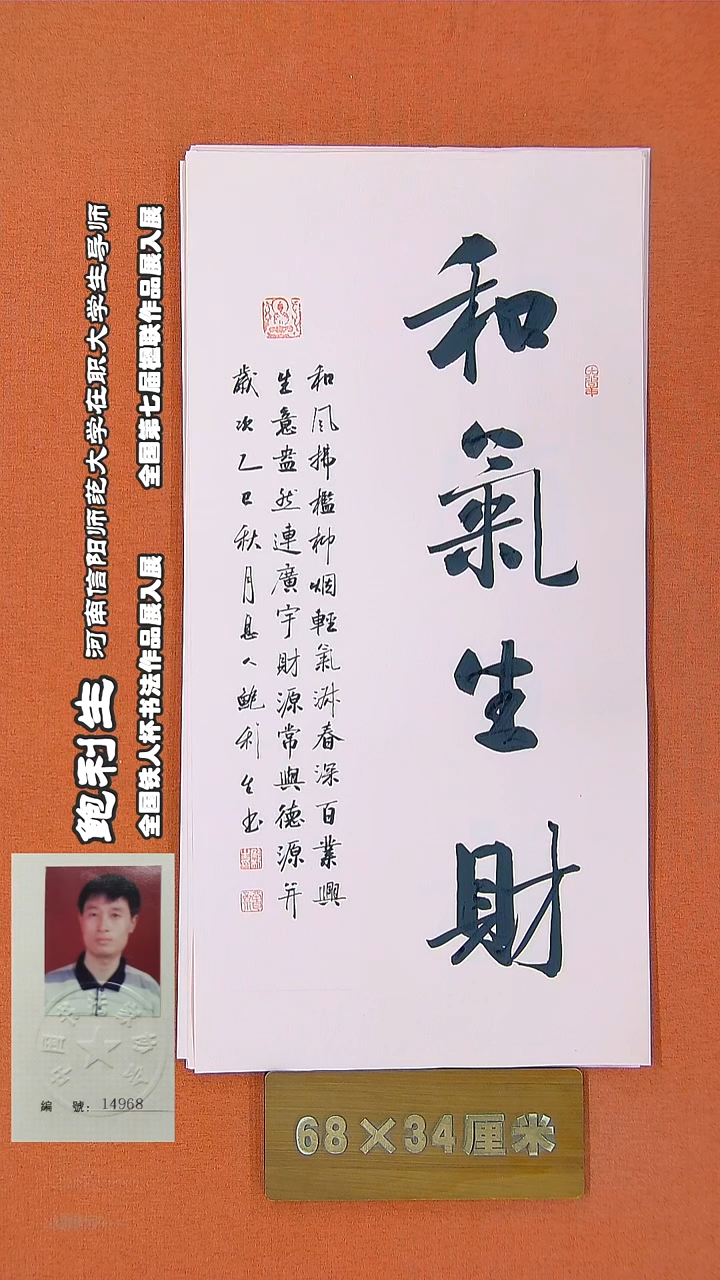 和氣生財
和風拂檻柳烟輕氣淑春深百業興
生意盎然連廣宇財源常與德源并
歲次乙巳秋月息人鮑利生书
鲍利生 河南信阳师范大学在职大学生导师
全国铁人杯书法作品展入展 全国第七届楹联作品展入展
編 號：14968
68×34厘米